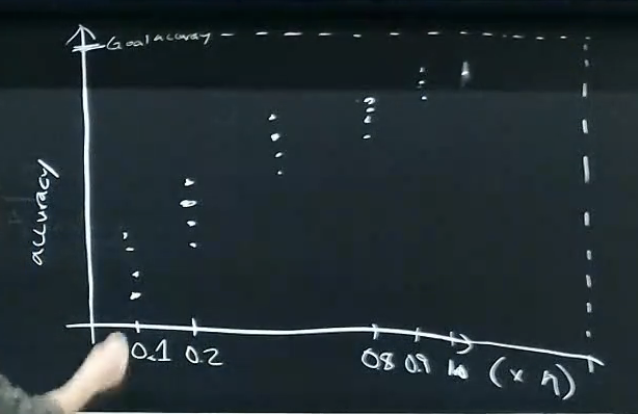 Goal accuracy
accuracy
0.1 0.2 0.8 0.9 1.0 (x n)